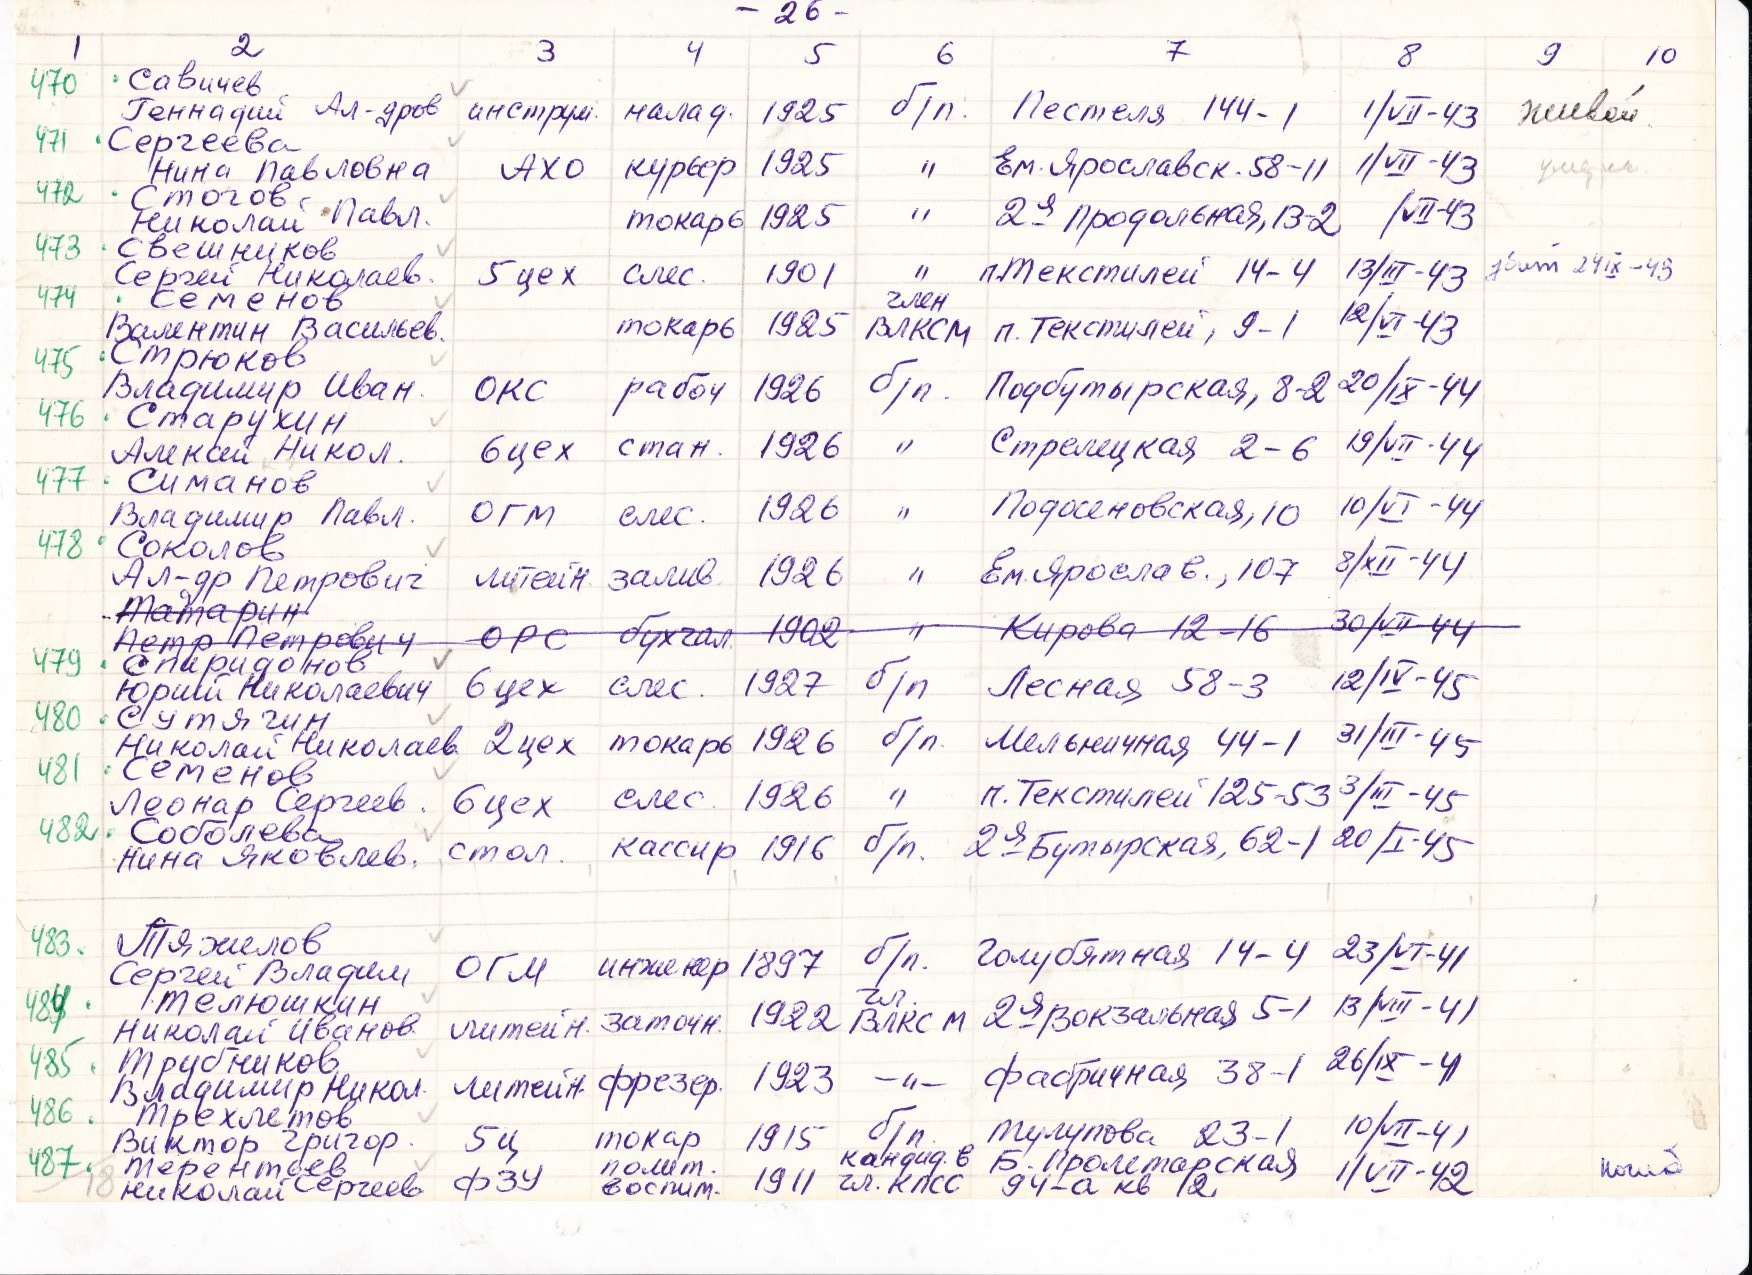 - 26 -
1 2 3 4 5 6 7 8 9 10
470 · Савичев
Геннадий Ал-дров инструм. налад. 1925 б/п. Пестеля 144-1 1/VII-43 живой.
471 · Сергеева
Нина Павловна АХО курьер 1925 " Ем. Ярославск. 58-11 1/VII-43
472 · Стогов
Николай Павл. токарь 1925 " 2я Продольная, 13-2 /VII-43
473 · Свешников
Сергей Николаев. 5 цех слес. 1901 " п. Текстилей 14-4 13/III-43 убит 24 IX-43
474 · Семенов член
Валентин Васильев. токарь 1925 ВЛКСМ п. Текстилей, 9-1 12/VI-43
475 · Стрюков
Владимир Иван. ОКС рабоч 1926 б/п. Подбутырская, 8-2 20/IX-44
476 · Старухин
Алексей Никол. 6 цех стан. 1926 " Стрелецкая 2-6 19/VII-44
477 · Симанов
Владимир Павл. ОГМ слес. 1926 " Подосеновская, 10 10/VI-44
478 · Соколов
Ал-др Петрович литейн. залив. 1926 " Ем. Ярослав., 107 8/XII-44
Татарин
Петр Петрович ОРС бухгал. 1902 " Кирова 12-16 30/VII-44
479 · Спиридонов
Юрий Николаевич 6 цех слес. 1927 б/п Лесная 58-3 12/IV-45
480 · Сутягин
Николай Николаев. 2 цех токарь 1926 б/п. Мельничная 44-1 31/III-45
481 · Семенов
Леонар Сергеев. 6 цех слес. 1926 " п. Текстилей 125-53 3/III-45
482 · Соболева
Нина Яковлев. стол. кассир 1916 б/п. 2я Бутырская, 62-1 20/I-45
483. Тяжелов
Сергей Владим ОГМ инженер 1897 б/п. Голубятная 14-4 23/VI-41
484. Телюшкин чл.
Николай Иванов. литейн. заточн. 1922 ВЛКСМ 2я Вокзальная 5-1 13/VIII-41
485. Трубников
Владимир Никол. литейн. фрезер. 1923 -"- Фабричная 38-1 26/IX-41
486. Трехлетов
Виктор Григор. 5 ц токар 1915 б/п. Тулупова 23-1 10/VII-41
487. Терентьев полит. кандид. в Б. Пролетарская
Николай Сергеев ФЗУ воспит. 1911 чл. КПСС 94-а кв 12 1/VII-42